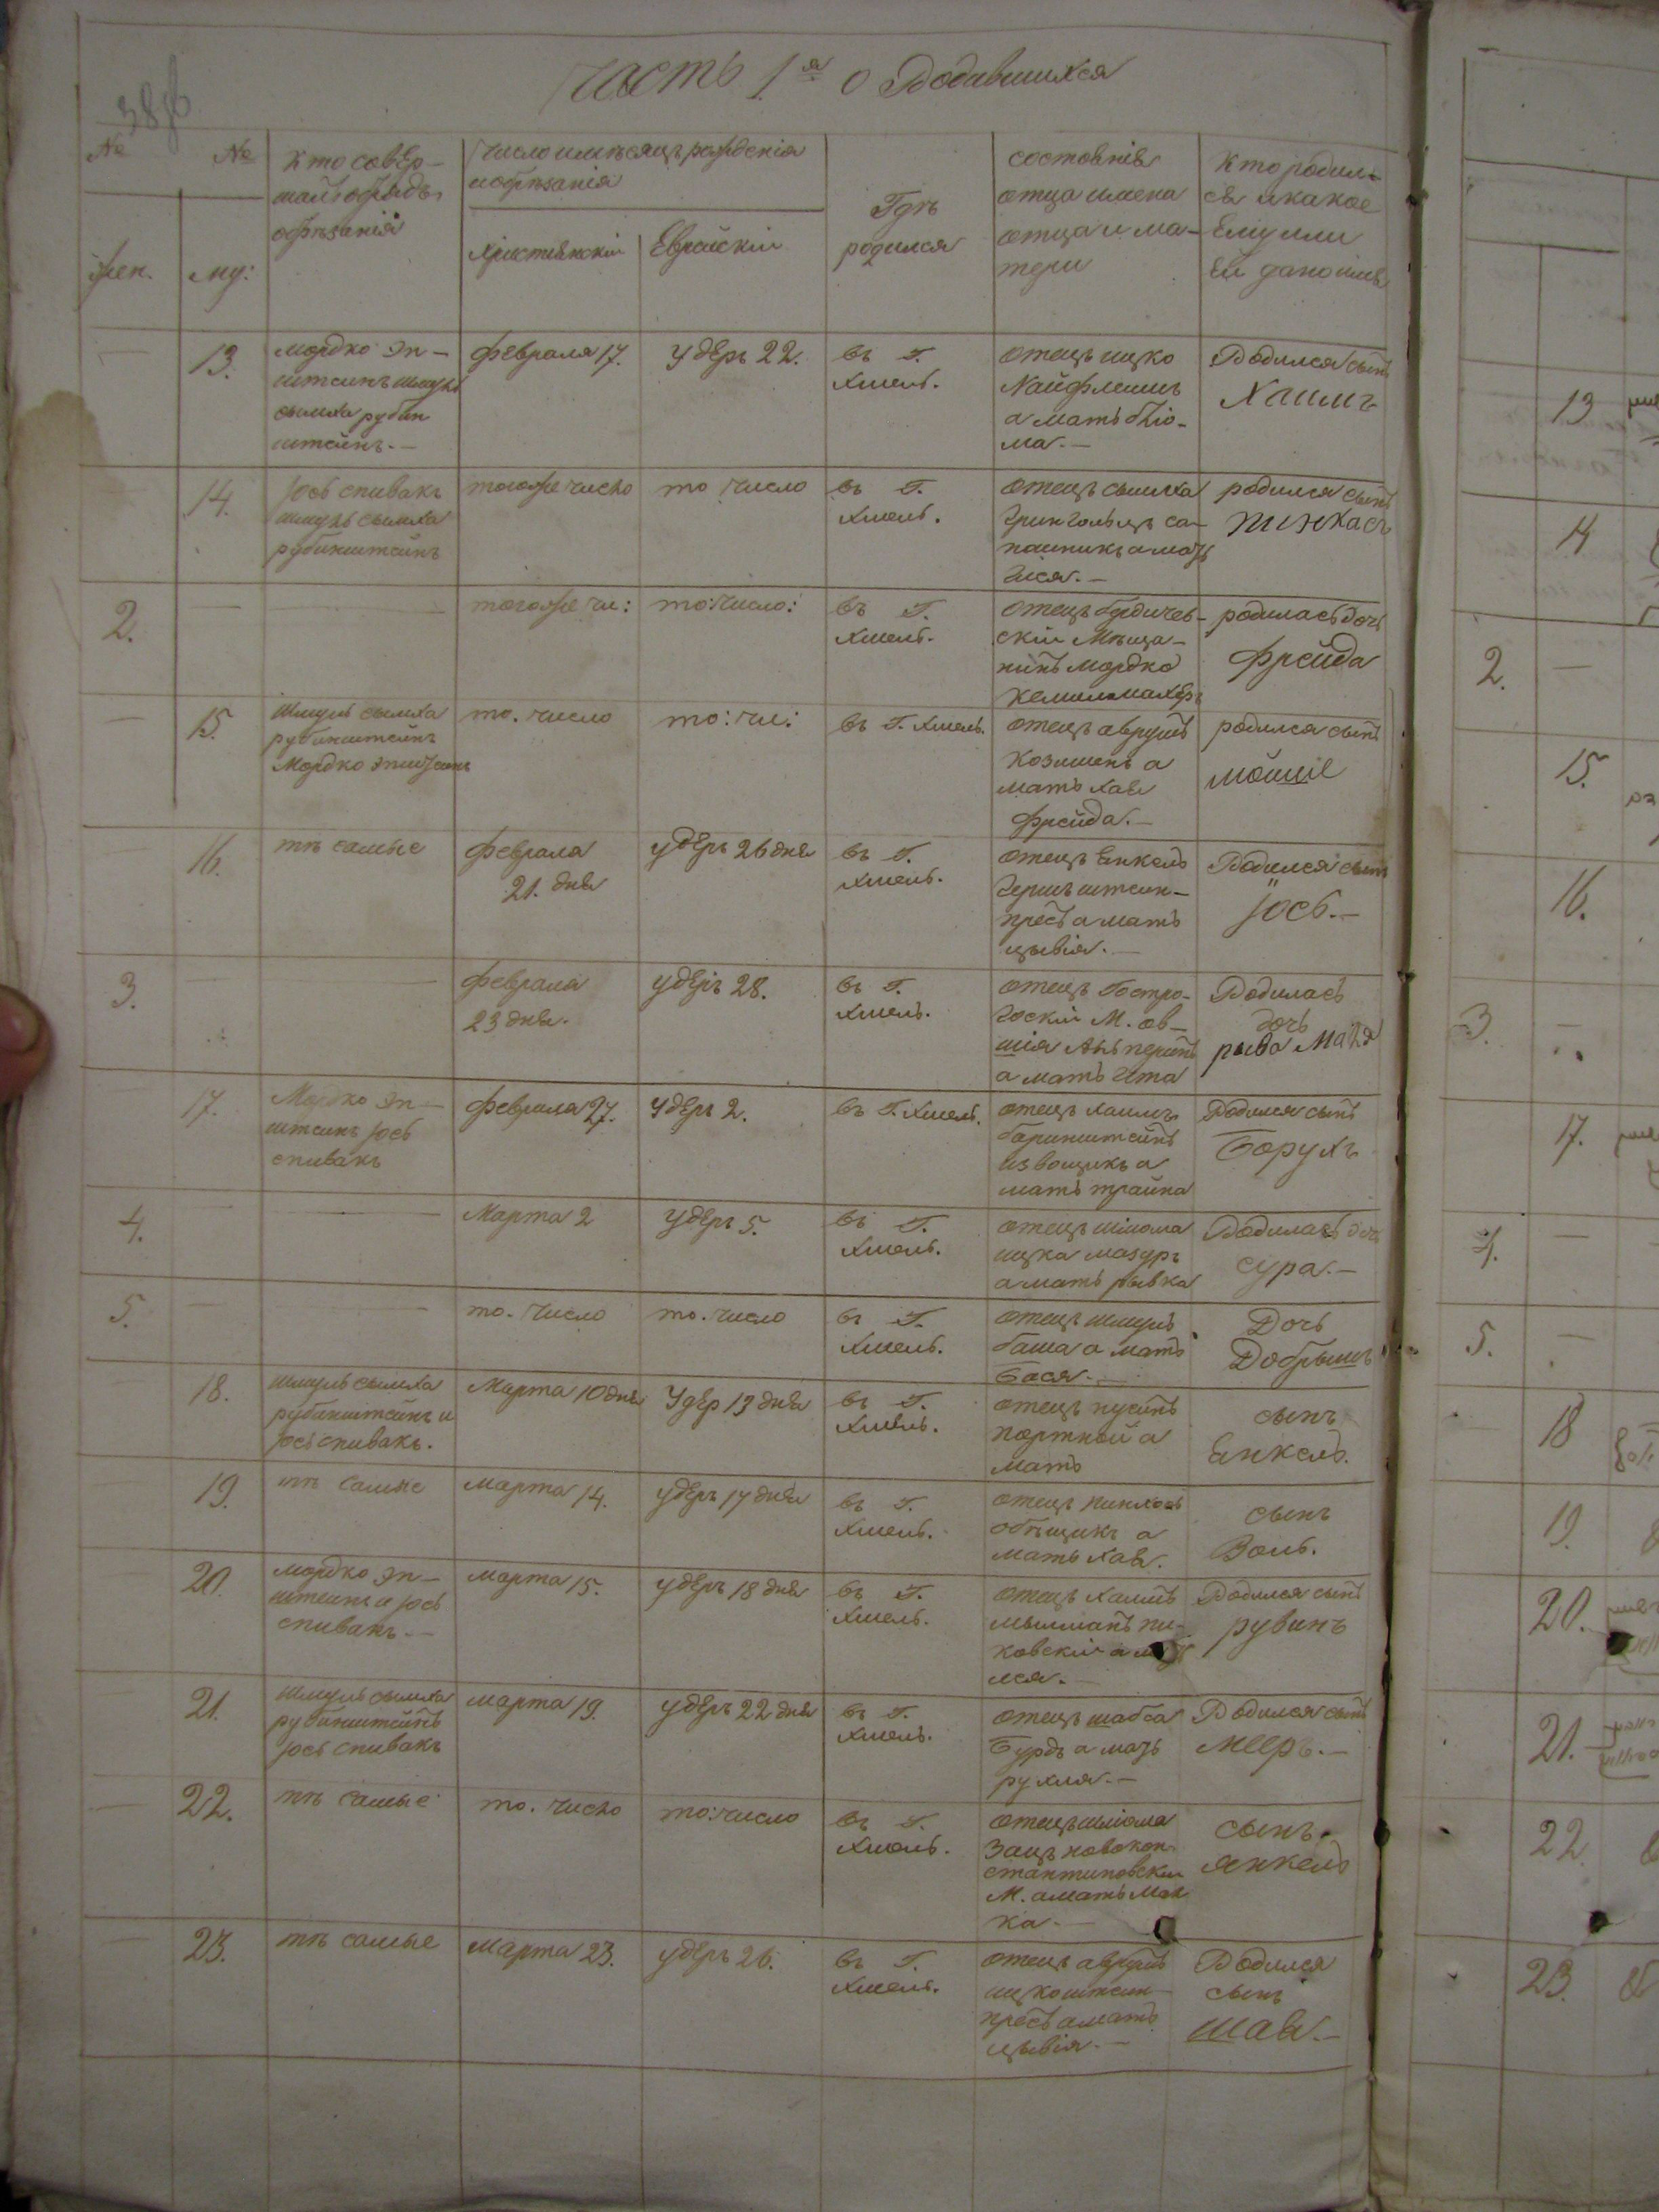 Часть 1я о Родившихся
№ №
жен. му:
Кто совер-
шалъ обрядъ
обрѣзанія
Число и мѣсяцъ рожденія
и обрѣзанія
Христіянскій
Еврейскій
Гдѣ
родился
состояніе
отца имена
отца и ма-
тери
Кто родил-
ся и какое
Ему или
Ей дано имя
13.
мордко эп-
штеинъ шмуль
сымха рубин
штейнъ.-
февраля 17.
удеръ 22.
въ Г.
Хмель.
отецъ ицко
Найфлишъ
а мать блю-
ма.-
Родился сынъ
Хаимъ
14.
Іось спивакъ
шмуль сымха
рубинштейнъ
тогоже число
то число
въ Г.
Хмель.
отецъ сымха
а мать
родился сынъ
пинхасъ
2.
тогоже чи:
то:число:
въ Г.
Хмель.
отецъ бердичев-
скій Мѣща-
нинъ мордко
родилась дочь
фрейда
15.
Шмуль сымха
рубинштеинъ
Мордко эпштеинъ
то. число
то: чи:
въ Г. Хмель.
отецъ аврумъ
а
мать хая
фрейда.-
родился сынъ
мошие
16.
тѣ самые
февраля
21. дня
удеръ 26 дня
въ Г.
Хмель.
отецъ Енкель
гершъ штеин-
а мать
цывія.-
Родился сынъ
Іось.-
3.
февраля
23 дня.
удеръ 28.
въ Г.
Хмель.
отецъ
М. ов-
шія
а мать ита
Родилась
дочь
рыва
17.
Мордко эп-
штеинъ Іось
спивакъ
февраля 27.
удеръ 2.
въ Г. Хмель.
отецъ хаимъ
извощикъ а
мать трайна
Родился сынъ
Борухъ
4.
Марта 2
удеръ 5.
въ Г.
Хмель.
отецъ шліома
ицка мазуръ
а мать рывка
Родилась доч
сура.-
5.
то. число
то. число
въ Г.
Хмель.
отецъ шмуль
баша а мать
Бася.-
Дочь
Добрышъ
18.
шмуль сымха
рубинштейнъ и
Іось спивакъ.
Марта 10 дня
Удер 13 дня
въ Г.
Хмель.
отецъ нусинъ
портной а
мать
сынъ
Енкель.
19.
тѣ самые
марта 14.
удеръ 17 дня
въ Г.
Хмель.
отецъ пинхось
а
мать хая.
сынъ
Воль.
20.
мордко эп-
штеинъ и Іось
спивакъ.-
марта 15.
удеръ 18 дня
въ Г.
Хмель.
отецъ хаимъ
пи-
ковскій а
лея.-
Родился сынъ
рувинъ
21.
шмуль сымха
рубинштейнъ
Іось спивакъ
марта 19.
удеръ 22 дня
въ Г.
Хмель.
отецъ шабса
Бурдъ а мать
рухля.-
Родился сынъ
Мееръ.-
22.
тѣ самые
то. число
то:число
въ Г.
Хмель.
отецъ шліома
Заецъ новокон-
стантиновскій
М. а мать мал
ка.-
сынъ
янкель
23.
тѣ самые
марта 23.
удеръ 26.
въ Г.
Хмель.
отецъ аврумъ
ицко штеин-
а мать
цывія.-
Родился
сынъ
шая.-
13
14
2.
15.
16.
3.
17.
4.
5.
18
19.
20.
21.
22.
23.